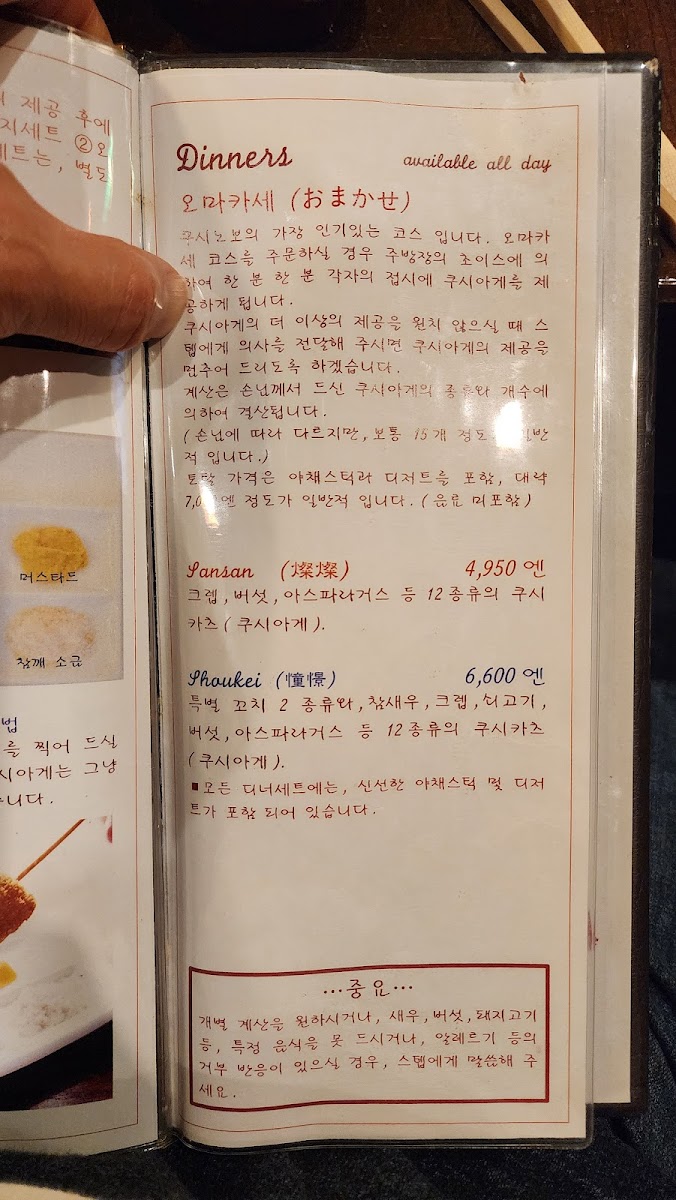 제공 후에
지세트 ②오
세트는, 별도
머스타드
참깨 소금
법
를 찍어 드실
시아게는 그냥
니다.
Dinners available all day
오마카세 (おまかせ)
쿠시노보의 가장 인기있는 코스 입니다. 오마카
세 코스를 주문하실 경우 주방장의 초이스에 의
하여 한 분 한 분 각자의 접시에 쿠시아게를 제
공하게 됩니다.
쿠시아게의 더 이상의 제공을 원치 않으실 때 스
텝에게 의사를 전달해 주시면 쿠시아게의 제공을
멈추어 드리도록 하겠습니다.
계산은 손님께서 드신 쿠시아게의 종류와 개수에
의하여 결산됩니다.
(손님에 따라 다르지만, 보통 15개 정도가 일반
적 입니다.)
토탈 가격은 야채스틱과 디저트를 포함, 대략
엔 정도가 일반적 입니다. (음료 미포함)
Sansan (燦燦) 4,950 엔
크렙, 버섯, 아스파라거스 등 12종류의 쿠시
카츠(쿠시아게).
Shoukei (憧憬) 6,600 엔
특별 꼬치 2 종류와, 참새우, 크렙, 쇠고기,
버섯, 아스파라거스 등 12종류의 쿠시카츠
(쿠시아게).
■모든 디너세트에는, 신선한 야채스틱 및 디저
트가 포함 되어 있습니다.
...중요...
개별 계산을 원하시거나, 새우, 버섯, 돼지고기
등, 특정 음식을 못 드시거나, 알레르기 등의
거부 반응이 있으실 경우, 스텝에게 말씀해 주
세요.